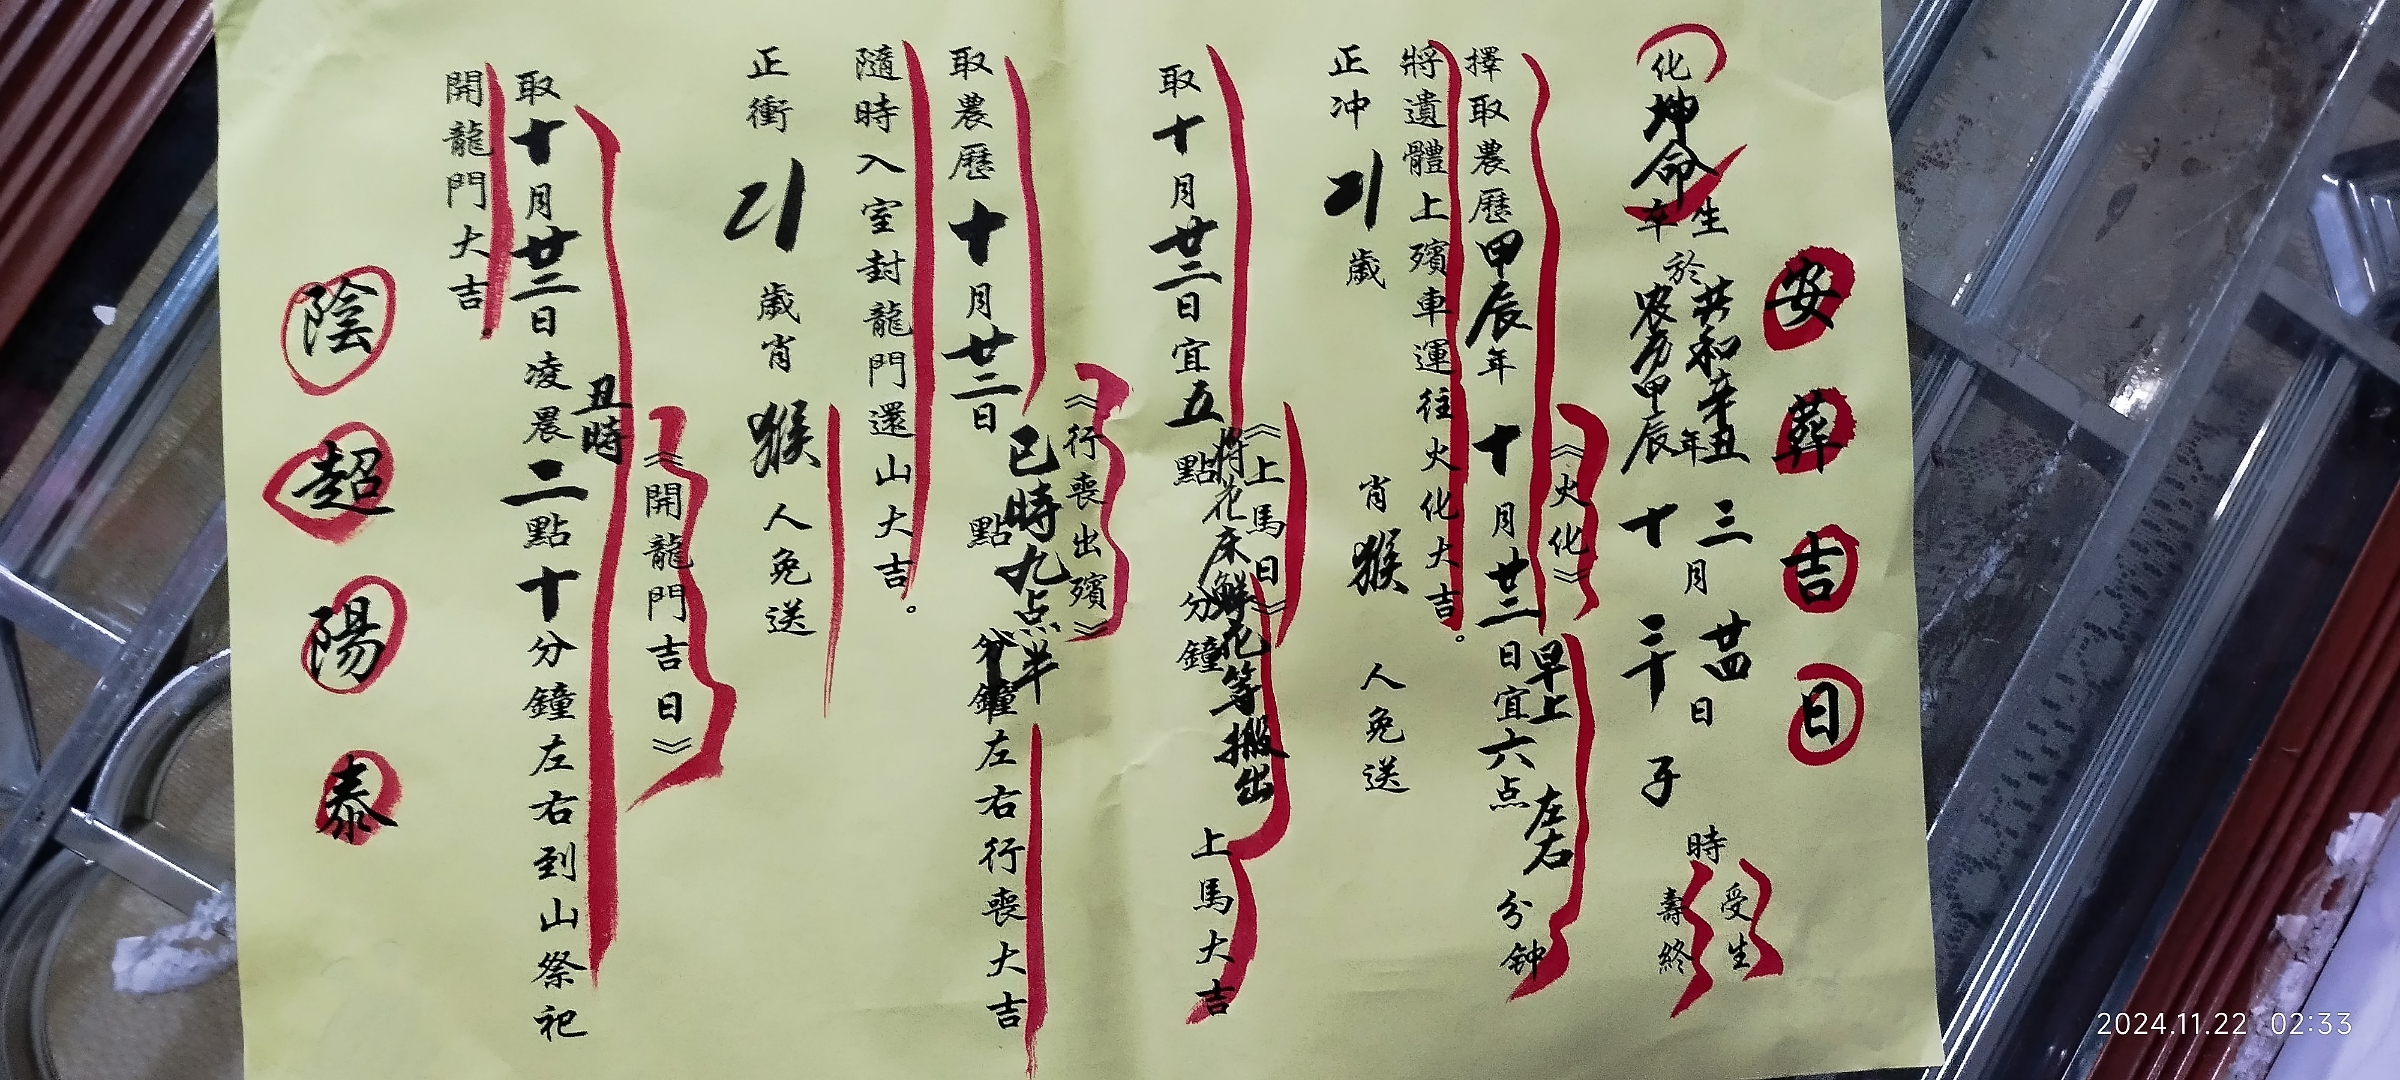 安葬吉日
化坤命
生於共和辛丑年三月廿四日子時受生
卒於农历甲辰年十月三十
壽終
《火化》
擇取農歷甲辰年十月廿三日宜早上六点左右分钟
將遺體上殯車運往火化大吉。
正冲21歲肖猴人免送
《上馬日》
取十月廿二日宜五點分鐘將花床鮮花等搬出上馬大吉
《行喪出殯》
取農歷十月廿二日巳時九点半點分鐘左右行喪大吉
隨時入室封龍門還山大吉。
正衝21歲肖猴人免送
《開龍門吉日》
取十月廿三日凌晨丑時二點十分鐘左右到山祭祀
開龍門大吉。
陰超陽泰
2024.11.22 02:33